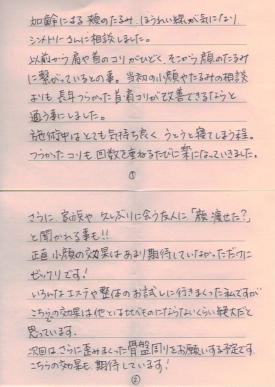 加齢による頬のたるみ、ほうれい線が気になり
シンメトリーさんに相談しました。
以前から肩や首のコリがひどく、そこから顔のたるみ
に繋がっているとの事。当初の小顔やたるみの相談
よりも長年つらかった首肩コリが改善できるならと
通う事にしました。
施術中はとても気持ち良く うとうと寝てしまう程。
つらかったコリも回数を重ねるたびに楽になっていきました。
①
さらに 家族や 久しぶりに会う友人に「顔痩せた？」
と聞かれる事も!!
正直小顔の効果はあまり期待していなかっただけに
ビックリです!
いろんなエステや整体のお試しに行きまくった私ですが
こちらの効果は他とは比べものにならないくらい絶大だと
思っています。
次回は、さらに歪みまくった骨盤周りをお願いする予定です。
こちらの効果も 期待しています!
②